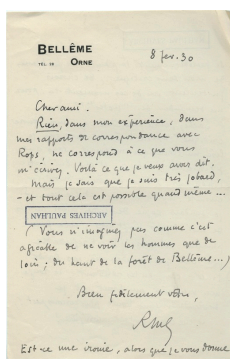 BELLÊME
TÉL. 28 ORNE
8 fev. 30
Cher ami.
Rien, dans mon expérience, dans
mes rapports de correspondance avec
Rops, ne correspond à ce que vous
m'écrivez. Voilà ce que je veux avoir dit.
Mais je sais que je suis très jobard,
- et tout cela est possible quand même ...
ARCHIVES PAULHAN
(Vous n'imaginez pas comme c'est
agréable de ne voir les hommes que de
loin ; du haut de la forêt de Bellême...)
Bien fidèlement vôtre,
Est-ce une ironie, alors que je vous donne